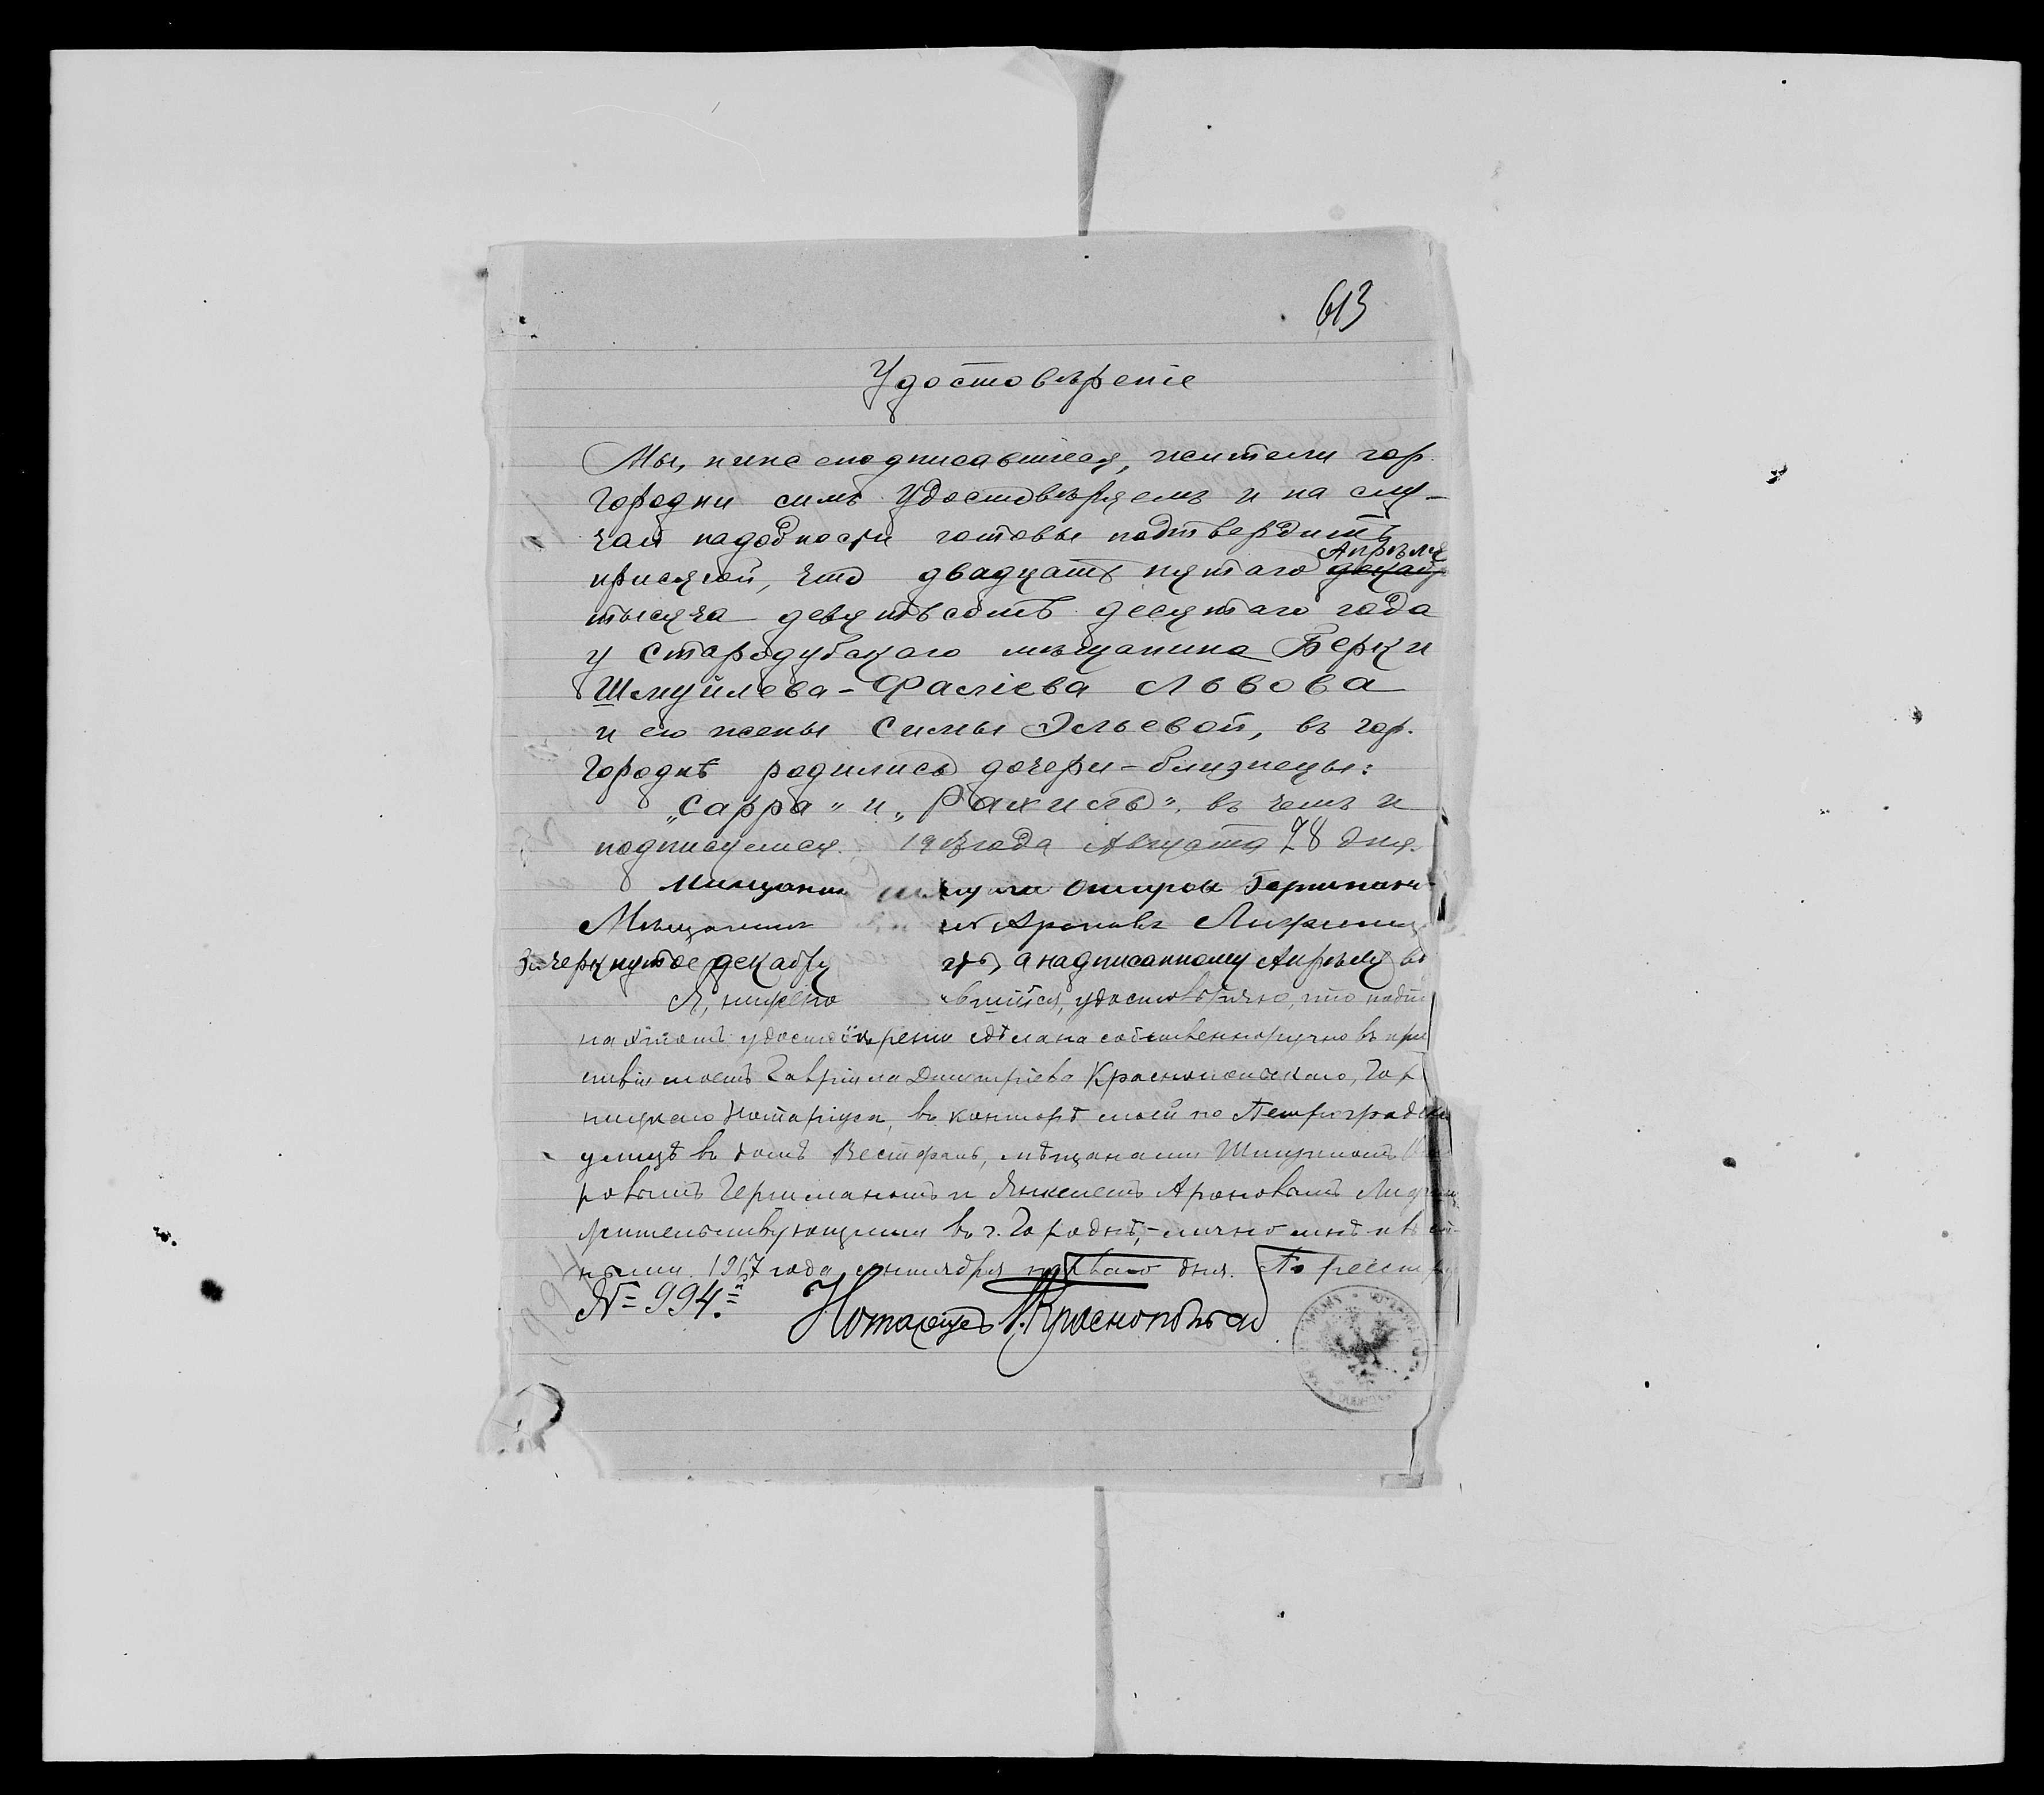 613
Удостовѣренie
Мы, нижеподписавшiеся, жители гор.
Городни симъ удостовѣряемъ и на слу-
чай надобности готовы подтвердить
Апрѣля
присягой, что двадцать пятаго декабр
тысяча девятьсотъ десятаго года
у Стародубскаго мѣщанина Берки
Шмуйлова-Фалiева Львова
и его жены Симы Эльевой, въ гор.
Городнѣ родились дочери-близнецы:
„Сарра" и „Рахиль", въ чемъ и
подписуемся. года Августа 28 дня.
Мищанин Ошеров Герцман
Мѣщанинъ Ароновъ
Зачеркнутое декабря а надписанному Апрѣля
Я, нижепо вшiйся, удостовѣряю, что
на этомъ удостовѣренiи сдѣлана собственноручно въ при
ствiи моемъ Гаврiила Дмитрiева Краснопольскаго, Гор
ницкаго Нотарiуса, въ конторѣ моей по Петроградской
улицѣ въ домѣ Вестфаль, мѣщанами
ровымъ Герцманомъ и Янкелемъ Ароновымъ
жительствующими въ г. Городнѣ,- лично мнѣ извѣст-
ными. 1917 года сентября перваго дня. По реестру
№ 994.
Нотарiусъ Г. Краснопольскiй